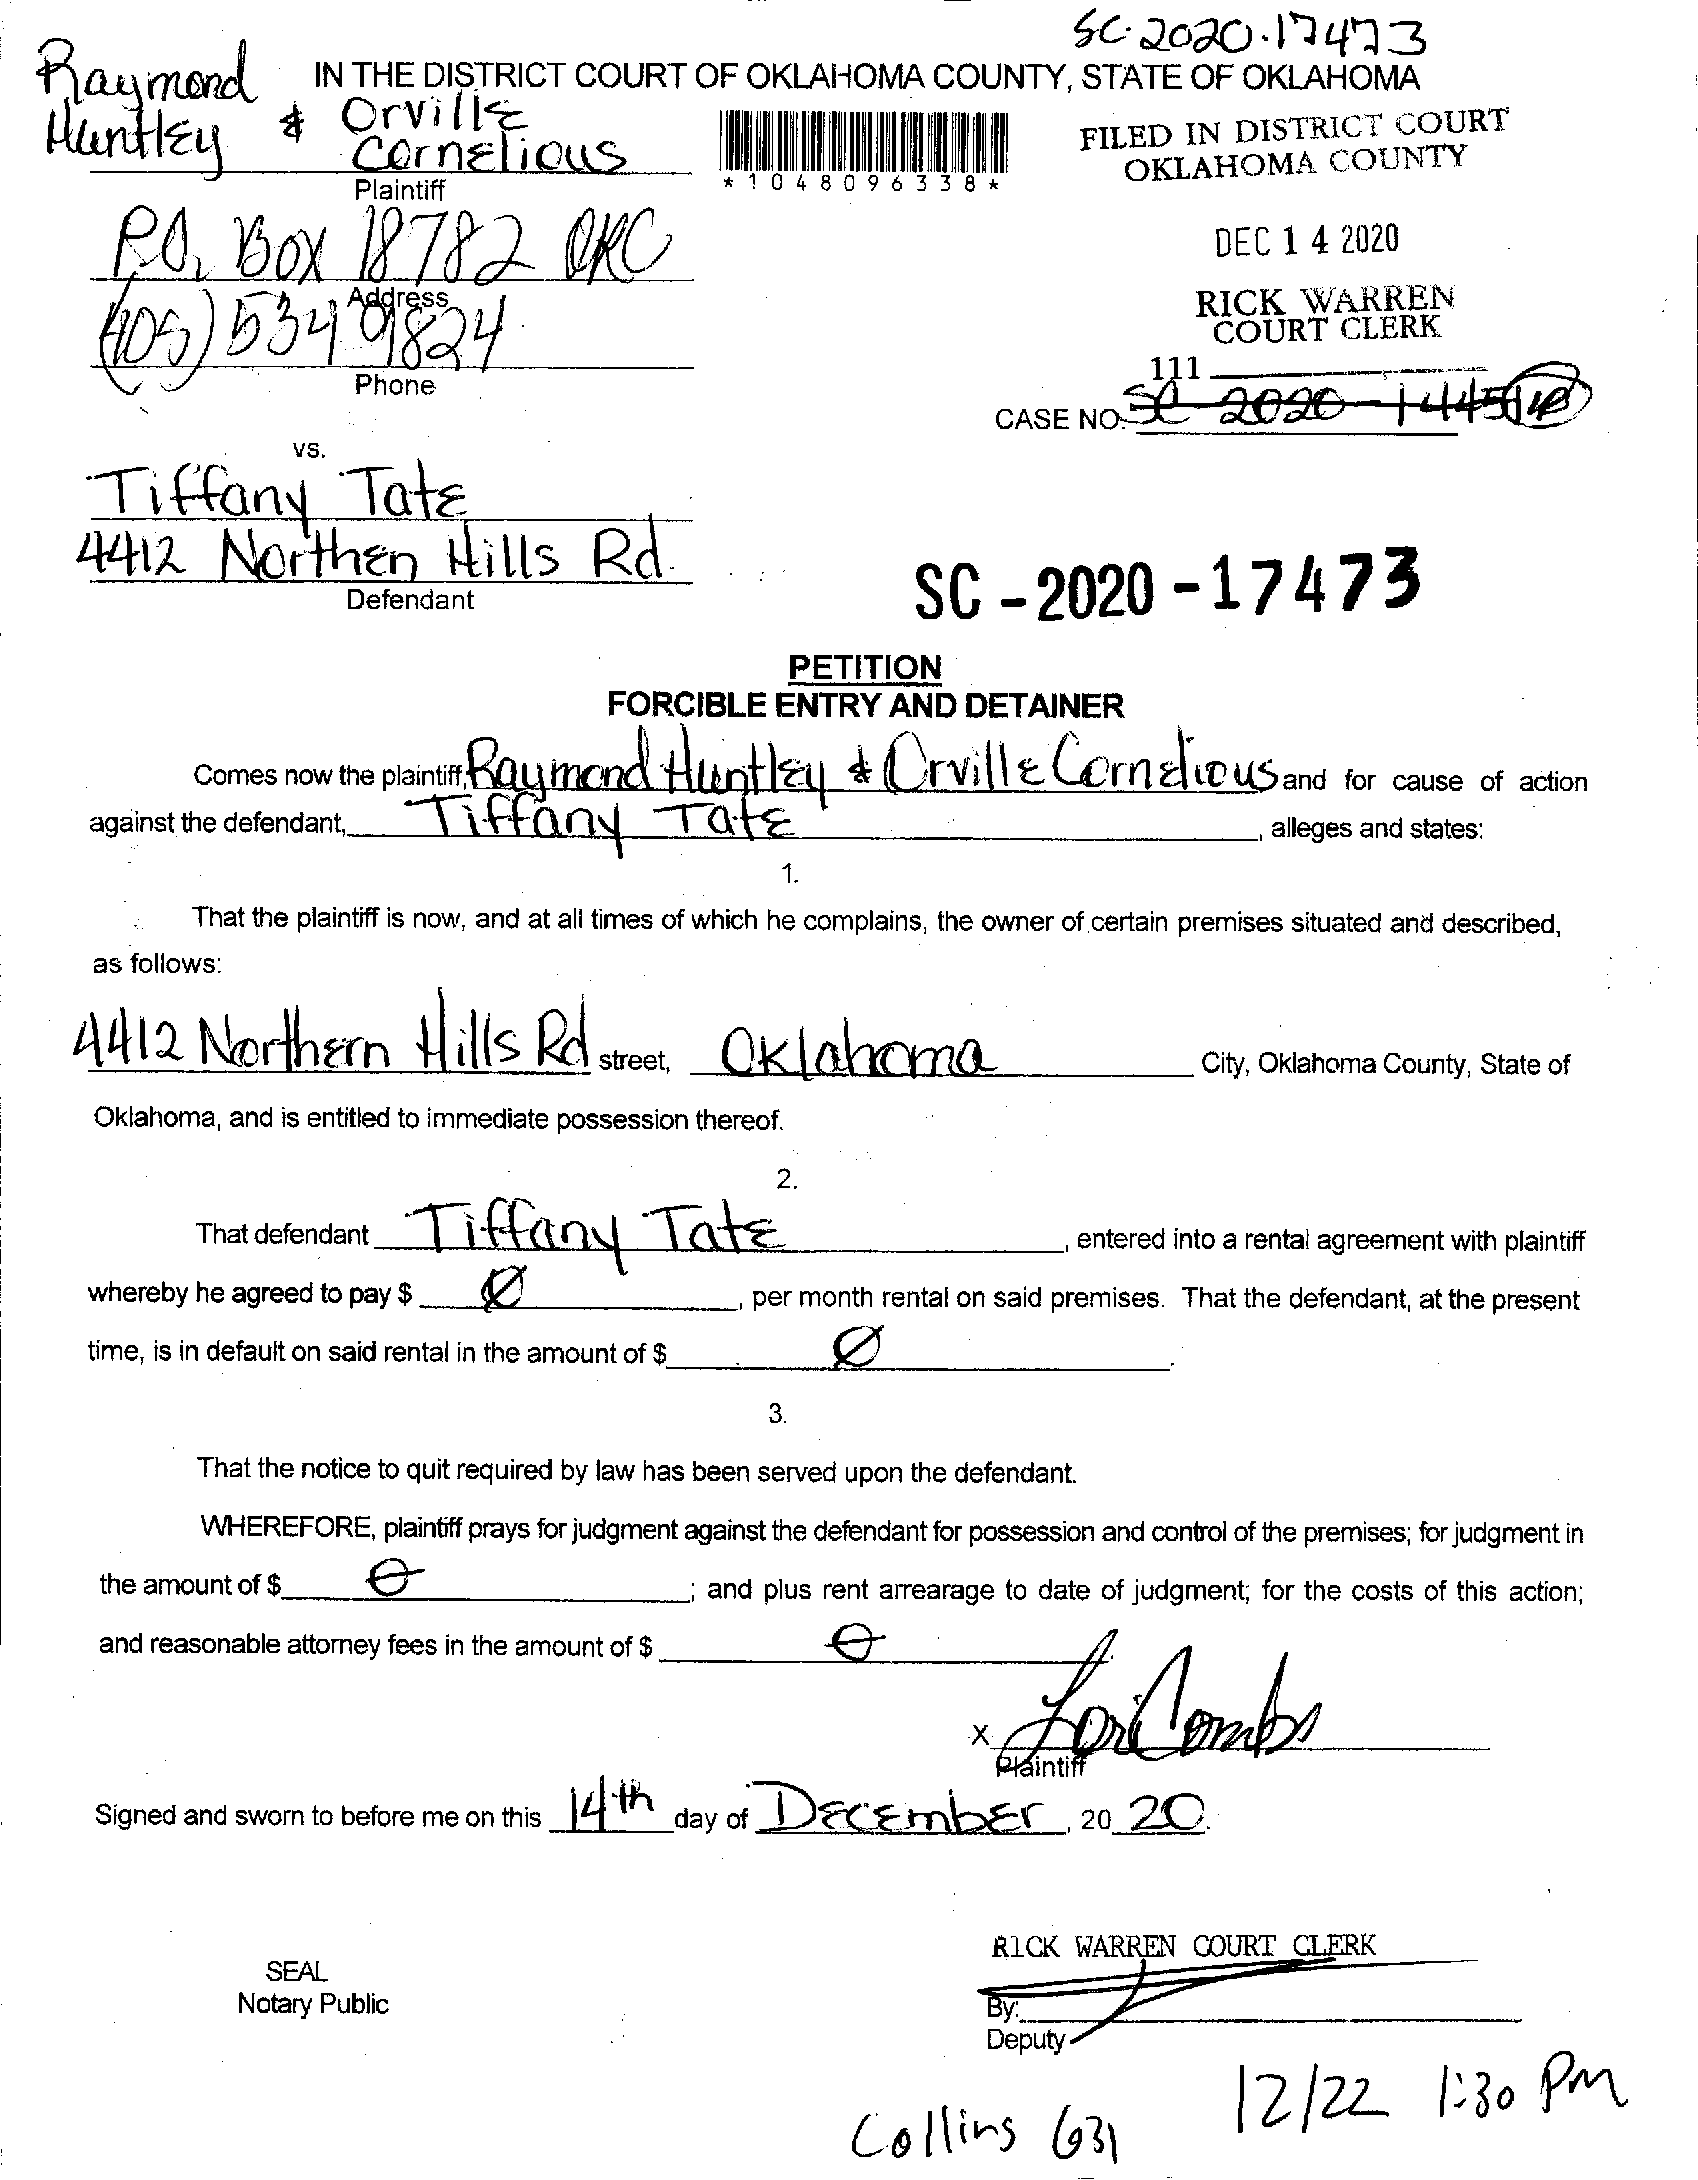 SC-2020-17473
IN THE DISTRICT COURT OF OKLAHOMA COUNTY, STATE OF OKLAHOMA
Raymond
Huntley & Orville
Cornelious
Plaintiff
*1048096338*
FILED IN DISTRICT COURT
OKLAHOMA COUNTY
P.O. Box 18782 OKC
Address
DEC 14 2020
(405) 534 9824
Phone
RICK WARREN
COURT CLERK
111
CASE NO. SC 2020-1445
vs.
Tiffany Tate
4412 Northen Hills Rd.
Defendant
SC-2020-17473
PETITION
FORCIBLE ENTRY AND DETAINER
Comes now the plaintiff, Raymond Huntley & Orville Cornelious and for cause of action
against the defendant, Tiffany Tate, alleges and states:
1.
That the plaintiff is now, and at all times of which he complains, the owner of certain premises situated and described,
as follows:
4412 Northern Hills Rd street, Oklahoma City, Oklahoma County, State of
Oklahoma, and is entitled to immediate possession thereof.
2.
That defendant Tiffany Tate, entered into a rental agreement with plaintiff
whereby he agreed to pay $ Ø, per month rental on said premises. That the defendant, at the present
time, is in default on said rental in the amount of $ Ø.
3.
That the notice to quit required by law has been served upon the defendant.
WHEREFORE, plaintiff prays for judgment against the defendant for possession and control of the premises; for judgment in
the amount of $ Ø; and plus rent arrearage to date of judgment; for the costs of this action;
and reasonable attorney fees in the amount of $ Ø
x Lori Combs
Plaintiff
Signed and sworn to before me on this 14th day of December, 2020.
RICK WARREN COURT CLERK
SEAL
Notary Public
By:
Deputy
12/22 1:30 PM
Collins 631